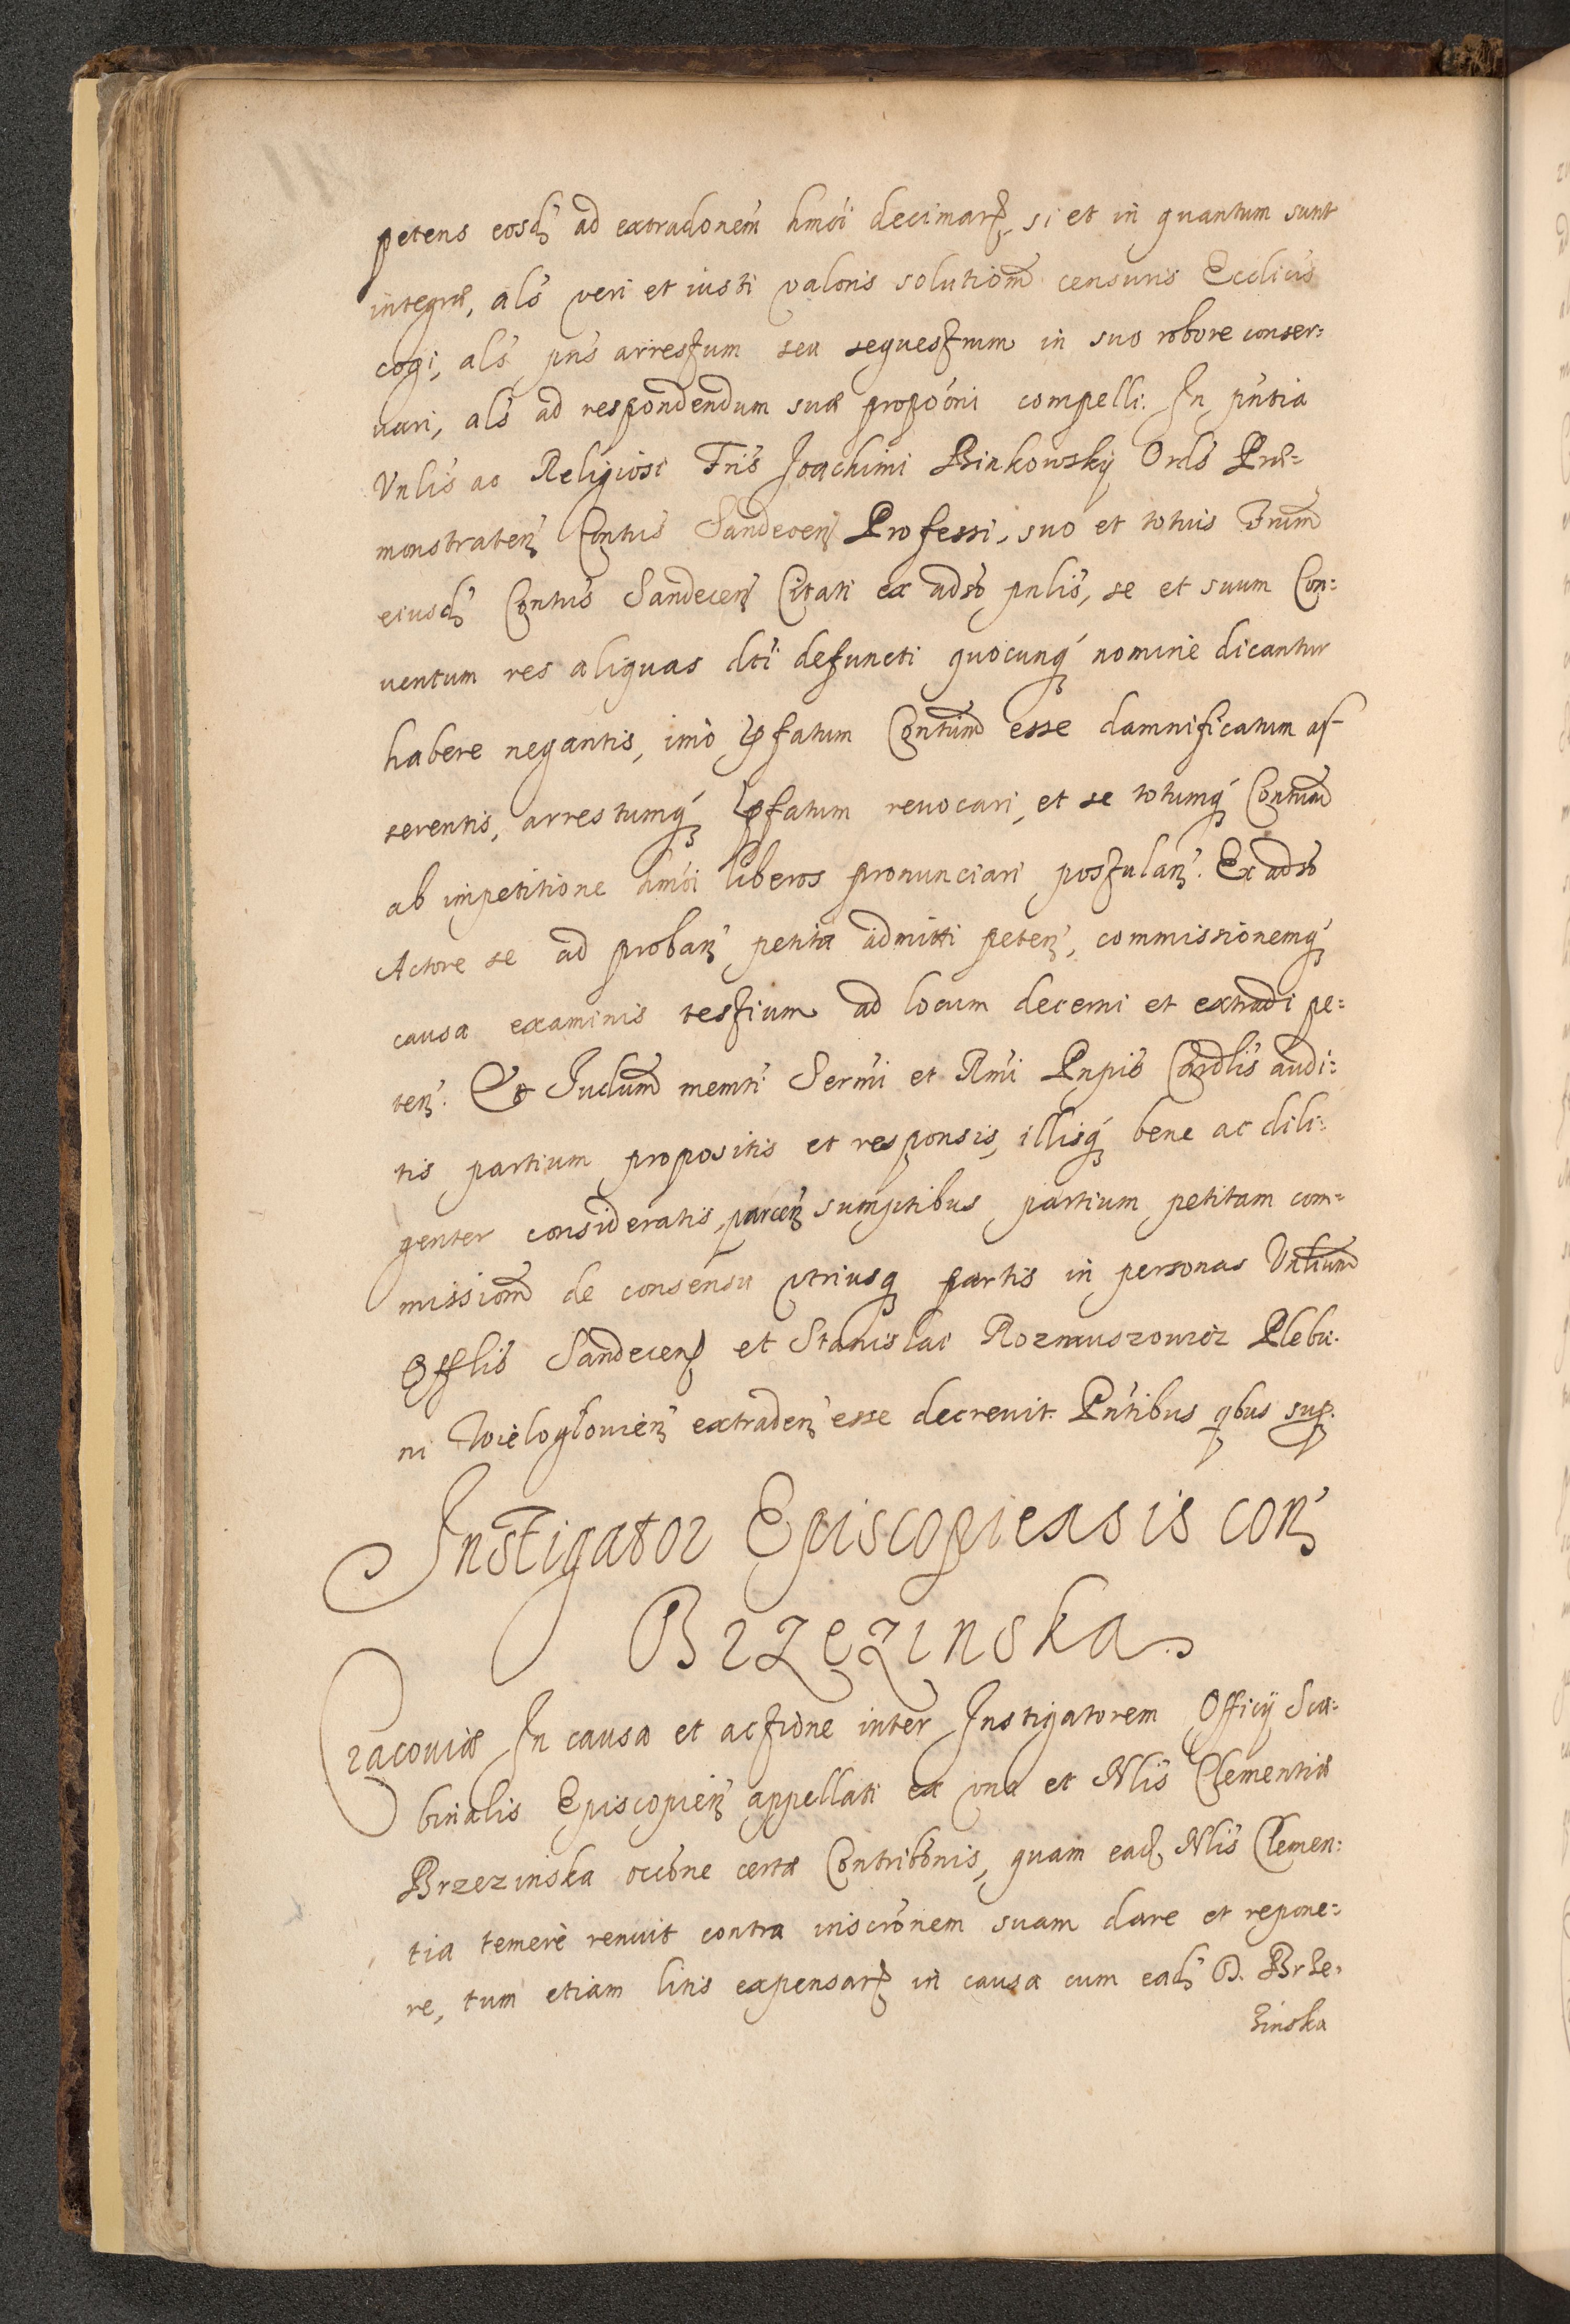 petens eosdꝫ ad extradonem hmoi decimarꝝ, si et in quantum sunt
integræ, als veri et iusti valoris solutiom̃ censuris Ecclicis
cogi, als pns arrestum seu sequestrum in suo robore conser:
uari, als ad respondendum suæ propo͠ni compelli. In pn͠tia
Vnlis ac Religiosi Fris Joachimi Binkowskÿ Ords Præ=
monstraten̄ Contus Sandecen̄ Professi, suo et totius Frum̃
eiusdꝫ Contus Sandecen̄ Citati ex adso pnlis, se et suum Con:
uentum res aliquas dti defuncti quocunqꝫ nomine dicantur
habere negantis, imò p̄fatum Contum̃ esse damnificatum as-
serentis, arrestumqꝫ p̄fatum reuocari, et se totumqꝫ Contum̃
ab impetitione hmoi liberos pronunciari postulan̄. Ex adso
Actore se ad proban̄ petita admitti peten̄, commissionemqꝫ
causa examinis testium ad locum decerni et extradi pe=
ten̄. Et Judum̃ memti Sermi et Rmi Pnpis Cardlis audi:
tis partium propositis et responsis, illisqꝫ bene ac dili:
genter consideratis, parcen̄ sumptibus partium petitam com=
missiom̃ de consensu vtriusqꝫ partis in personas Vnlium̃
Offlis Sandecen̄ et Stanislai Rozmuszowicz Pleba:
ni Wieloglouien̄ extraden̄ esse decreuit. Pn͠tibus qbus sup.
Instigator Episcopiensis con̄
Brzezinska
Cracouiæ In causa et actione inter Instigatorem Officÿ Sca:
binalis Episcopien̄ appellati ex vna et Nlis Clementiæ
Brzezinska occ͠one certæ Contribo͠nis, quam eadꝫ Nlis Clemen:
tia temerè renuit contra inscr͠onem suam dare et repone:
re, tum etiam litis expensarꝝ in causa cum eadꝫ D. Brze:
zinska